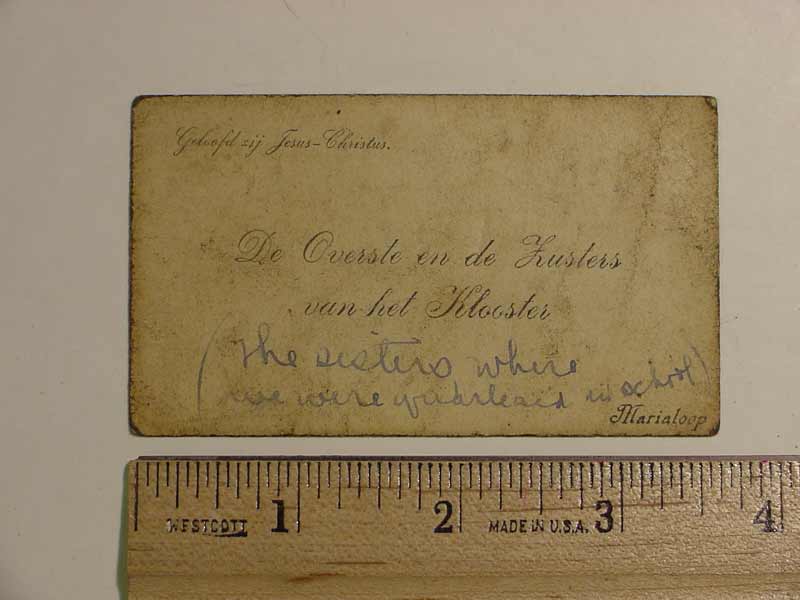 Geloofd zij Jesus-Christus.
De Overste en de Zusters
van het Klooster
(The sisters where
we were quartered in school)
Marialoop
WESTCOTT 1 2 MADE IN U.S.A. 3 4